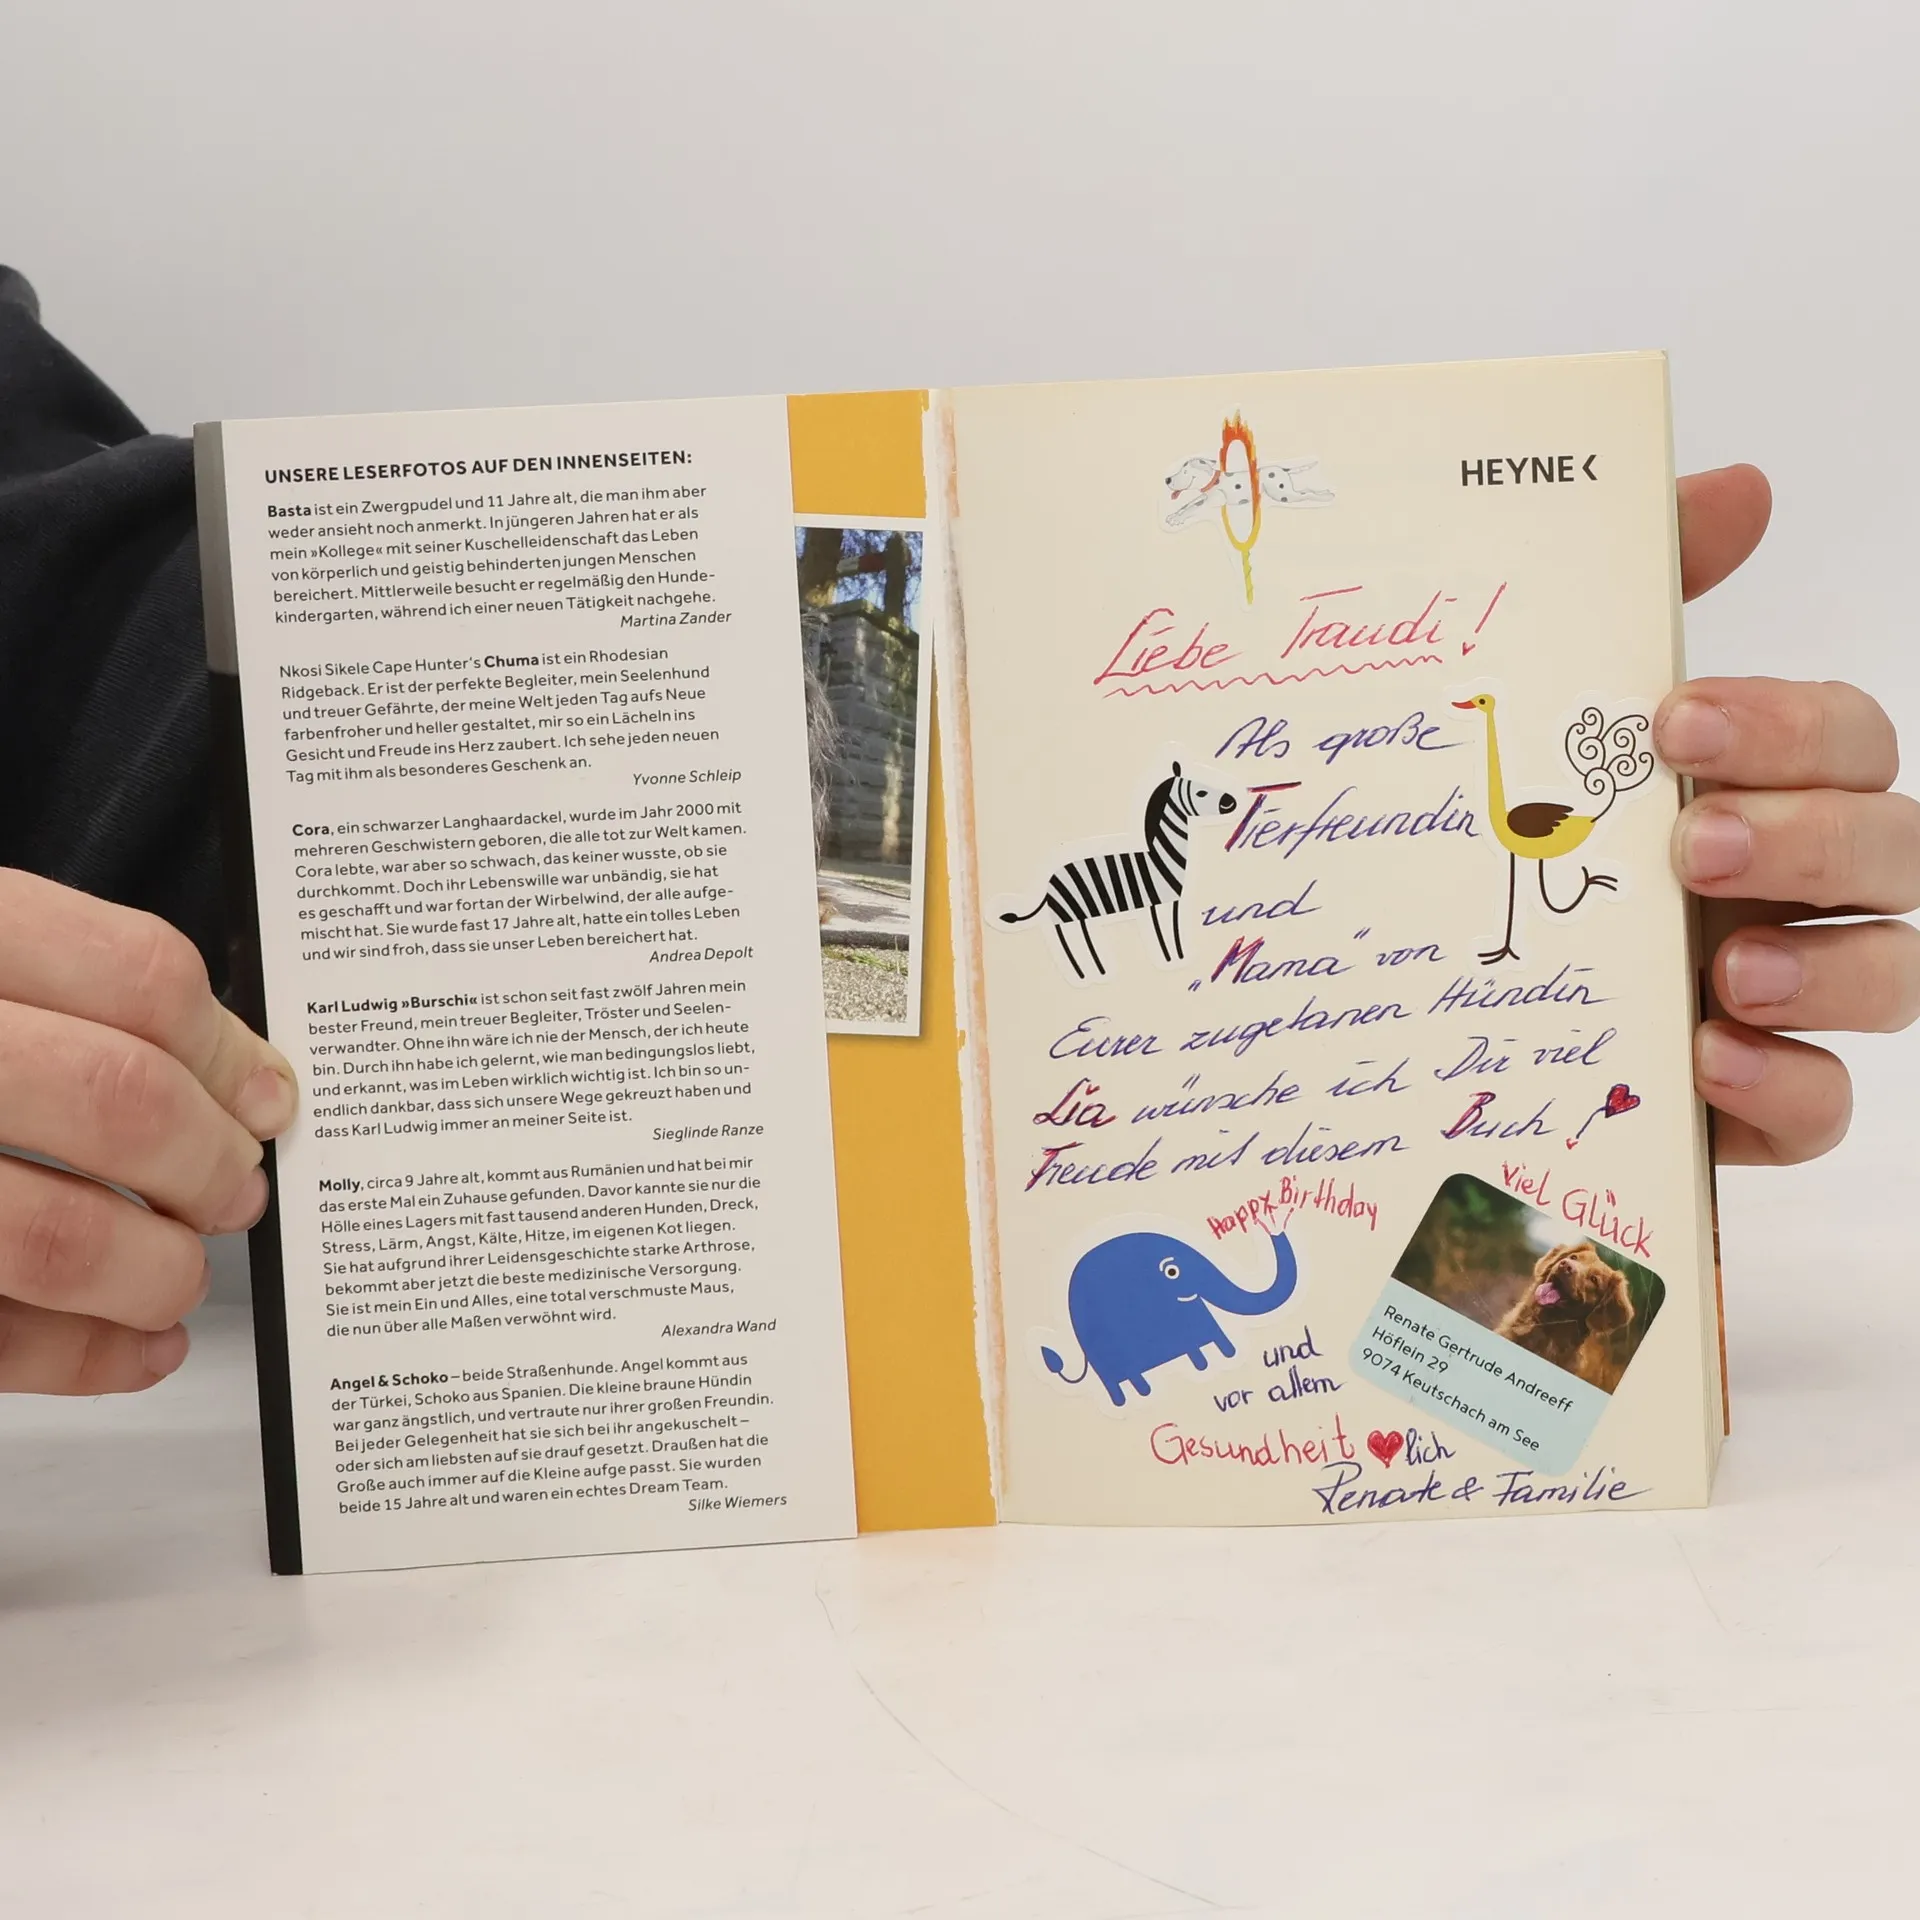 UNSERE LESERFOTOS AUF DEN INNENSEITEN:
Basta ist ein Zwergpudel und 11 Jahre alt, die man ihm aber
weder ansieht noch anmerkt. In jüngeren Jahren hat er als
mein »Kollege« mit seiner Kuschelleidenschaft das Leben
von körperlich und geistig behinderten jungen Menschen
bereichert. Mittlerweile besucht er regelmäßig den Hunde-
kindergarten, während ich einer neuen Tätigkeit nachgehe.
Martina Zander
Nkosi Sikele Cape Hunter's Chuma ist ein Rhodesian
Ridgeback. Er ist der perfekte Begleiter, mein Seelenhund
und treuer Gefährte, der meine Welt jeden Tag aufs Neue
farbenfroher und heller gestaltet, mir so ein Lächeln ins
Gesicht und Freude ins Herz zaubert. Ich sehe jeden neuen
Tag mit ihm als besonderes Geschenk an.
Yvonne Schleip
Cora, ein schwarzer Langhaardackel, wurde im Jahr 2000 mit
mehreren Geschwistern geboren, die alle tot zur Welt kamen.
Cora lebte, war aber so schwach, das keiner wusste, ob sie
durchkommt. Doch ihr Lebenswille war unbändig, sie hat
es geschafft und war fortan der Wirbelwind, der alle aufge-
mischt hat. Sie wurde fast 17 Jahre alt, hatte ein tolles Leben
und wir sind froh, dass sie unser Leben bereichert hat.
Andrea Depolt
Karl Ludwig »Burschi« ist schon seit fast zwölf Jahren mein
bester Freund, mein treuer Begleiter, Tröster und Seelen-
verwandter. Ohne ihn wäre ich nie der Mensch, der ich heute
bin. Durch ihn habe ich gelernt, wie man bedingungslos liebt,
und erkannt, was im Leben wirklich wichtig ist. Ich bin so un-
endlich dankbar, dass sich unsere Wege gekreuzt haben und
dass Karl Ludwig immer an meiner Seite ist.
Sieglinde Ranze
Molly, circa 9 Jahre alt, kommt aus Rumänien und hat bei mir
das erste Mal ein Zuhause gefunden. Davor kannte sie nur die
Hölle eines Lagers mit fast tausend anderen Hunden, Dreck,
Stress, Lärm, Angst, Kälte, Hitze, im eigenen Kot liegen.
Sie hat aufgrund ihrer Leidensgeschichte starke Arthrose,
bekommt aber jetzt die beste medizinische Versorgung.
Sie ist mein Ein und Alles, eine total verschmuste Maus,
die nun über alle Maßen verwöhnt wird.
Alexandra Wand
Angel & Schoko – beide Straßenhunde. Angel kommt aus
der Türkei, Schoko aus Spanien. Die kleine braune Hündin
war ganz ängstlich, und vertraute nur ihrer großen Freundin.
Bei jeder Gelegenheit hat sie sich bei ihr angekuschelt –
oder sich am liebsten auf sie drauf gesetzt. Draußen hat die
Große auch immer auf die Kleine aufge passt. Sie wurden
beide 15 Jahre alt und waren ein echtes Dream Team.
Silke Wiemers
HEYNE
Liebe Traudi!
Als große
Tierfreundin
und
„Mama" von
Eurer zugetanen Hündin
Lia wünsche ich Dir viel
Freude mit diesem Buch!
Happy Birthday
Viel Glück
Renate Gertrude Andreeff
Höflein 29
9074 Keutschach am See
und
vor allem
Gesundheit ♥lich
Renate & Familie